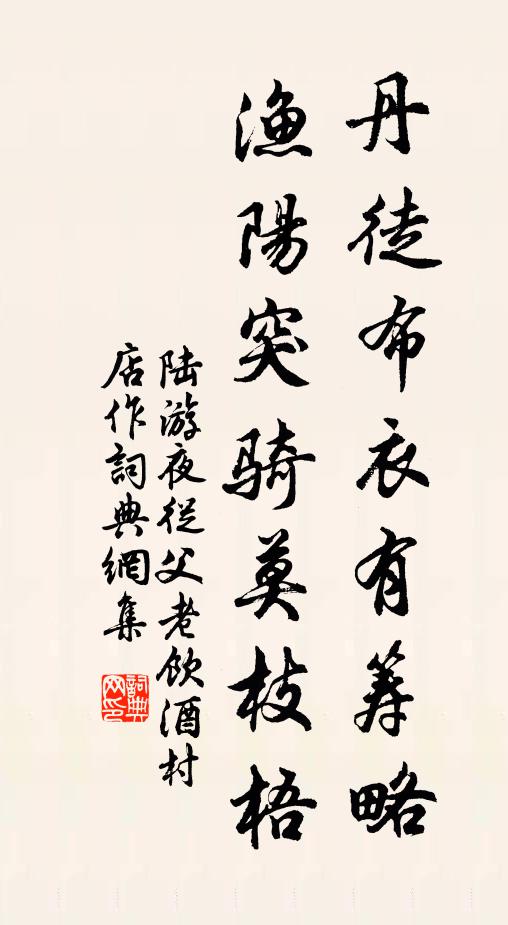 丹徒布衣有筭略
漁陽突騎莫枝梧
陆游夜從父老飲酒村
店作詞典網集
詞典
网印